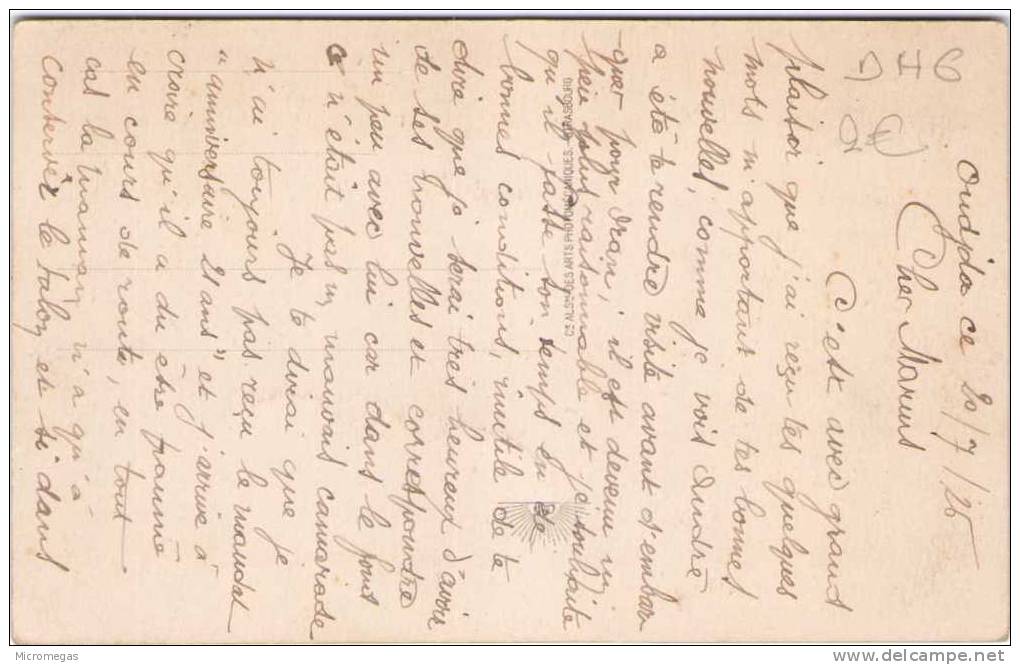 Oudjda ce 20/7/25
Cher Marius
C'est avec grand
plaisir que j'ai reçu tes quelques
mots m'apportant de tes bonnes
nouvelles, comme je vois André
a été te rendre visite avant d'embar
quer pour Oran, il est devenu un
peu plus raisonnable et je souhaite
qu'il fasse son temps en de
bonnes conditions, inutile de te
dire que je serai très heureux d'avoir
de ses nouvelles et correspondre
un peu avec lui car dans le fond
ce n'était pas un mauvais camarade
Je te dirai que je
n'ai toujours pas reçu le mandat
"anniversaire 21 ans" et j'arrive à
croire qu'il a du être paumé
en cours de route, en tout
cas la maman n'a qu'à
conserver le talon et si dans
CIE ALSNE DES ARTS PHOTOMECANIQUES. STRASBOURG
Micromegas
delcampe.net